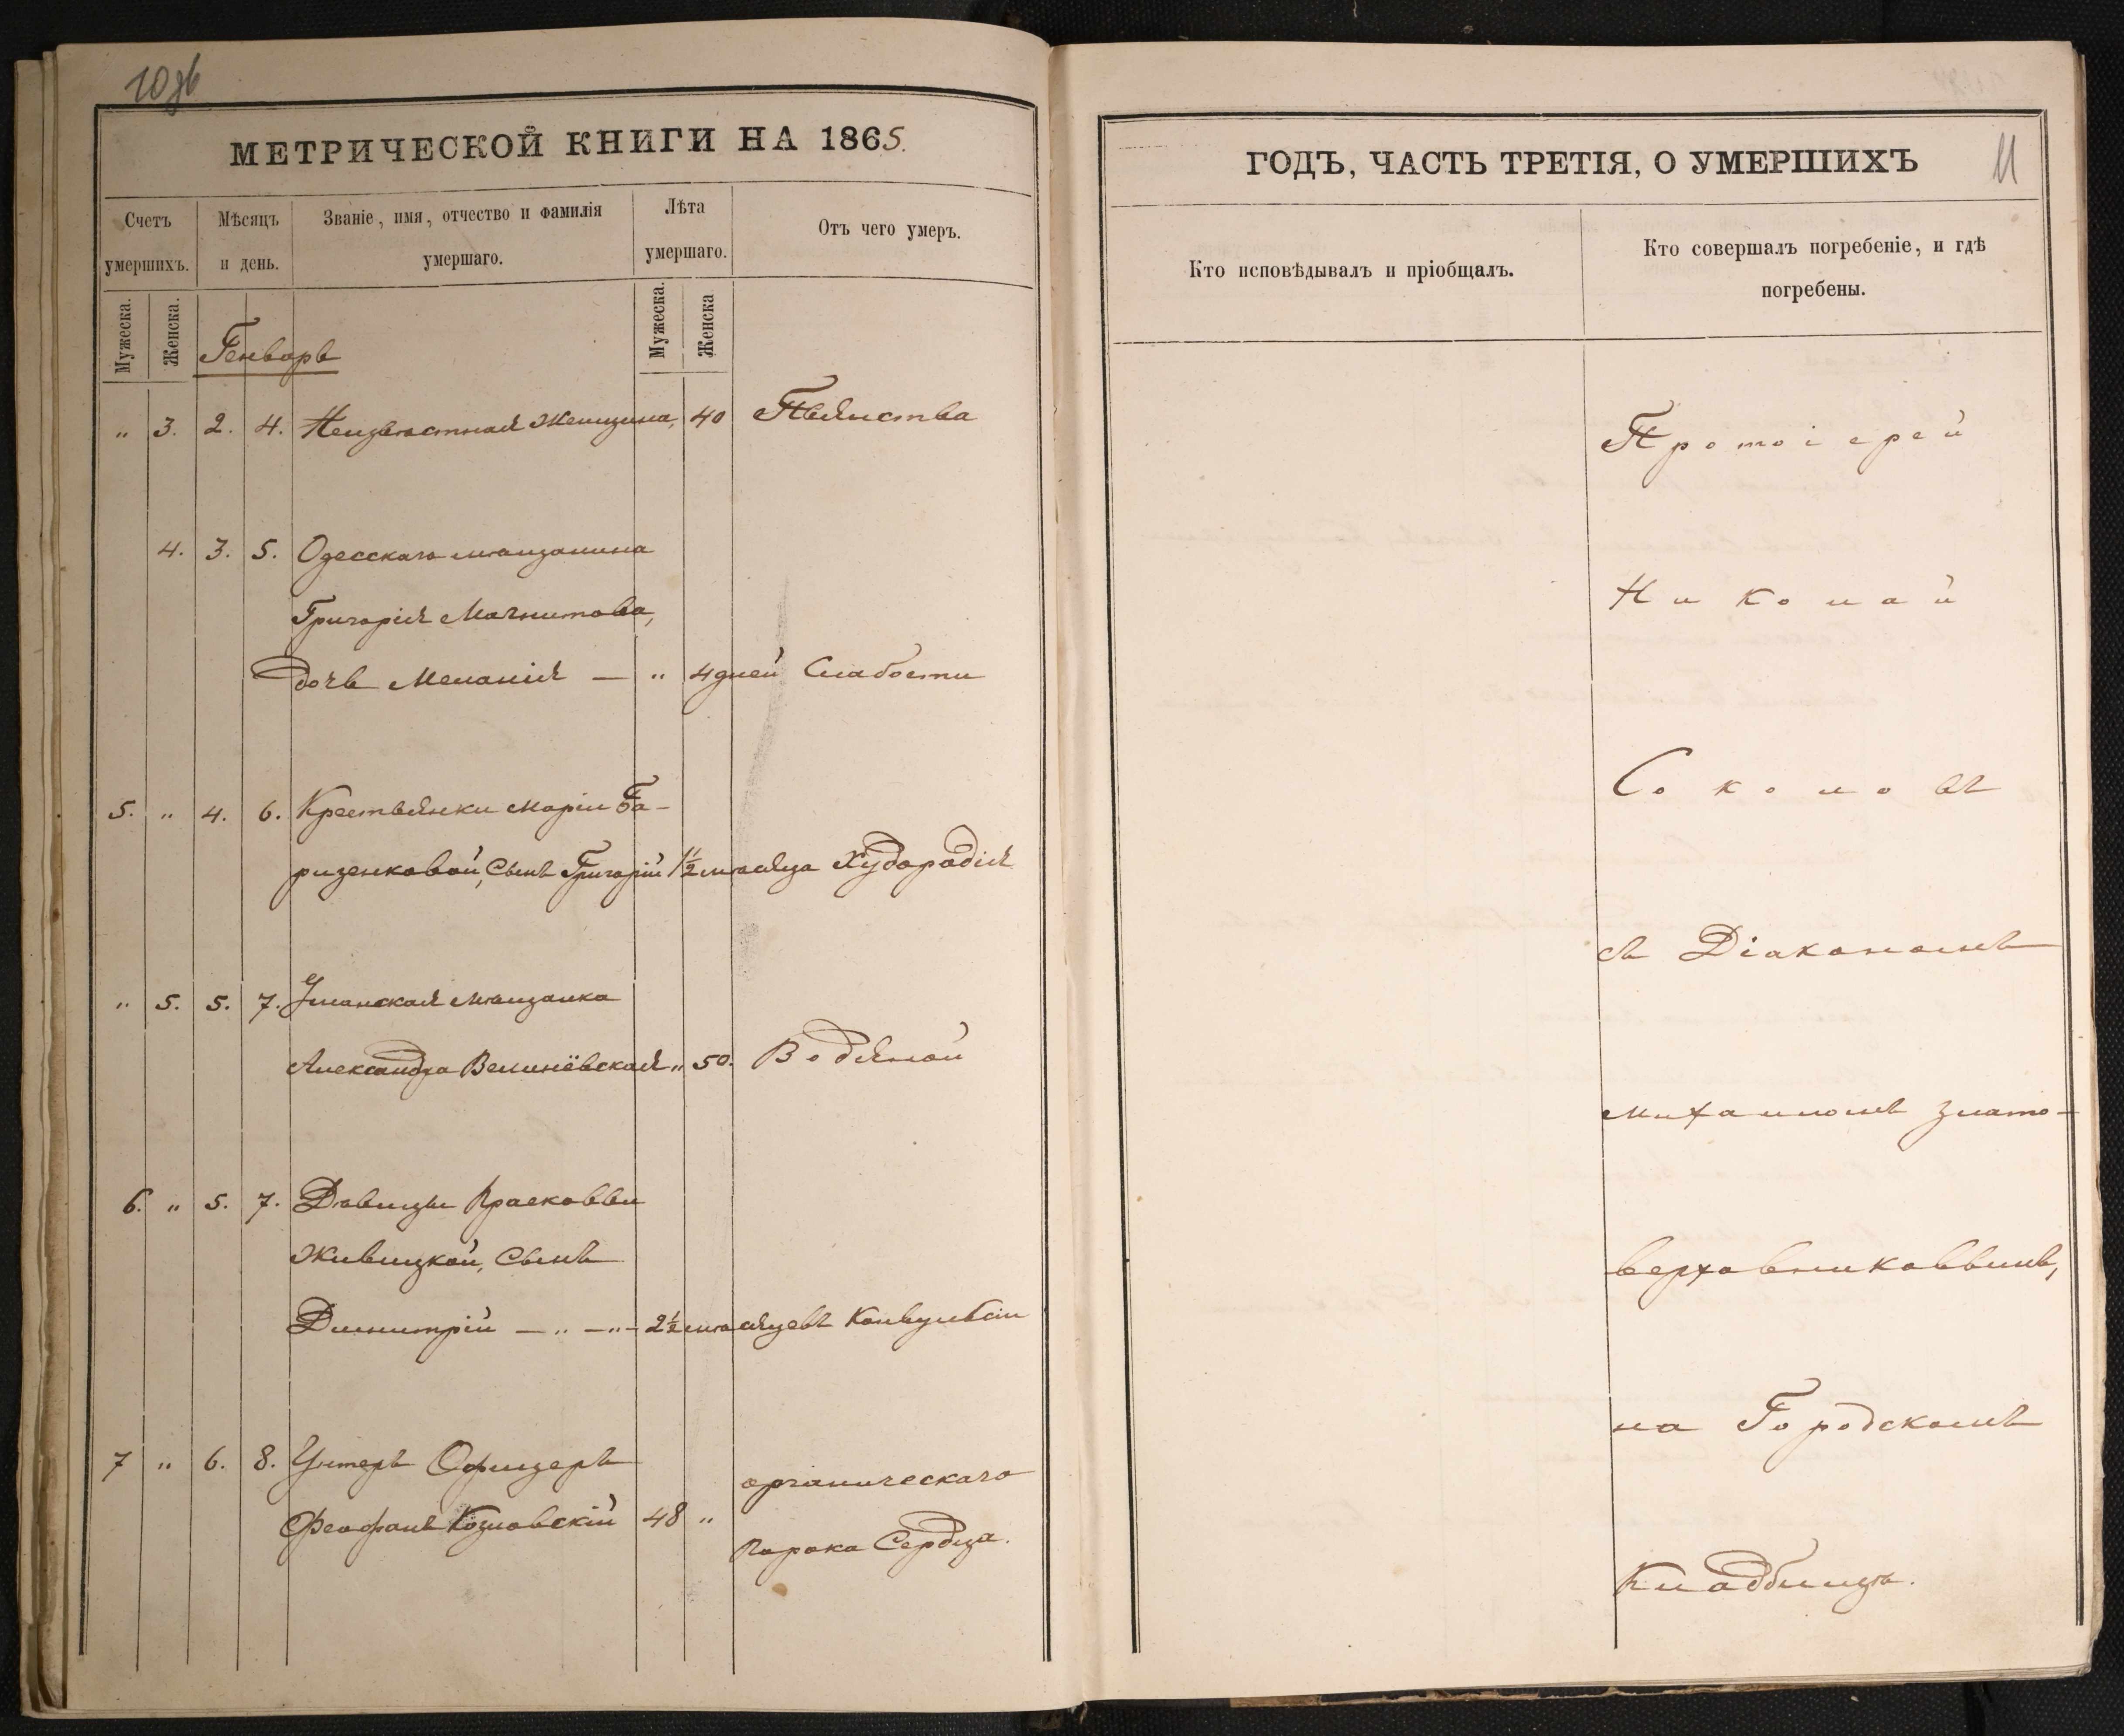 10об
МЕТРИЧЕСКОЙ КНИГИ НА 1865.
Счетъ умершихъ.
Мѣсяцъ и день.
Званіе, имя, отчество и фамилія умершаго.
Лѣта умершаго.
Отъ чего умеръ.
Мужеска.
Женска.
Мужеска.
Женска
Генварь
" 3. 2. 4. Неизвѣстная Женщина, 40 Пьянства
4. 3. 5. Одесскаго мѣщанина
Григорія Магнитова,
дочь Меланія — " 4 дней Слабости
5. " 4. 6. Крестьянки Маріи Га-
ризенковой, Сынъ Григорій 1½ мѣсяца Худорадія
" 5. 5. 7. Уманская Мѣщанка
Александра Велинёвская " 50. Водяной
6. " 5. 7. Дѣвицы Прасковьи
Живицкой, Сынъ
Димитрій — " — " — 2½ мѣсяцевъ Конвульсіи
7 " 6. 8. Унтеръ Офицеръ
Феофанъ Козловскій 48 " органическаго
Порока Сердца.
11
ГОДЪ, ЧАСТЬ ТРЕТІЯ, О УМЕРШИХЪ
Кто исповѣдывалъ и пріобщалъ.
Кто совершалъ погребеніе, и гдѣ погребены.
Протоіерей
Николай
Соколовъ
съ Діакономъ
Михаиломъ Злато-
верховниковымъ,
на Городскомъ
Кладбищѣ.